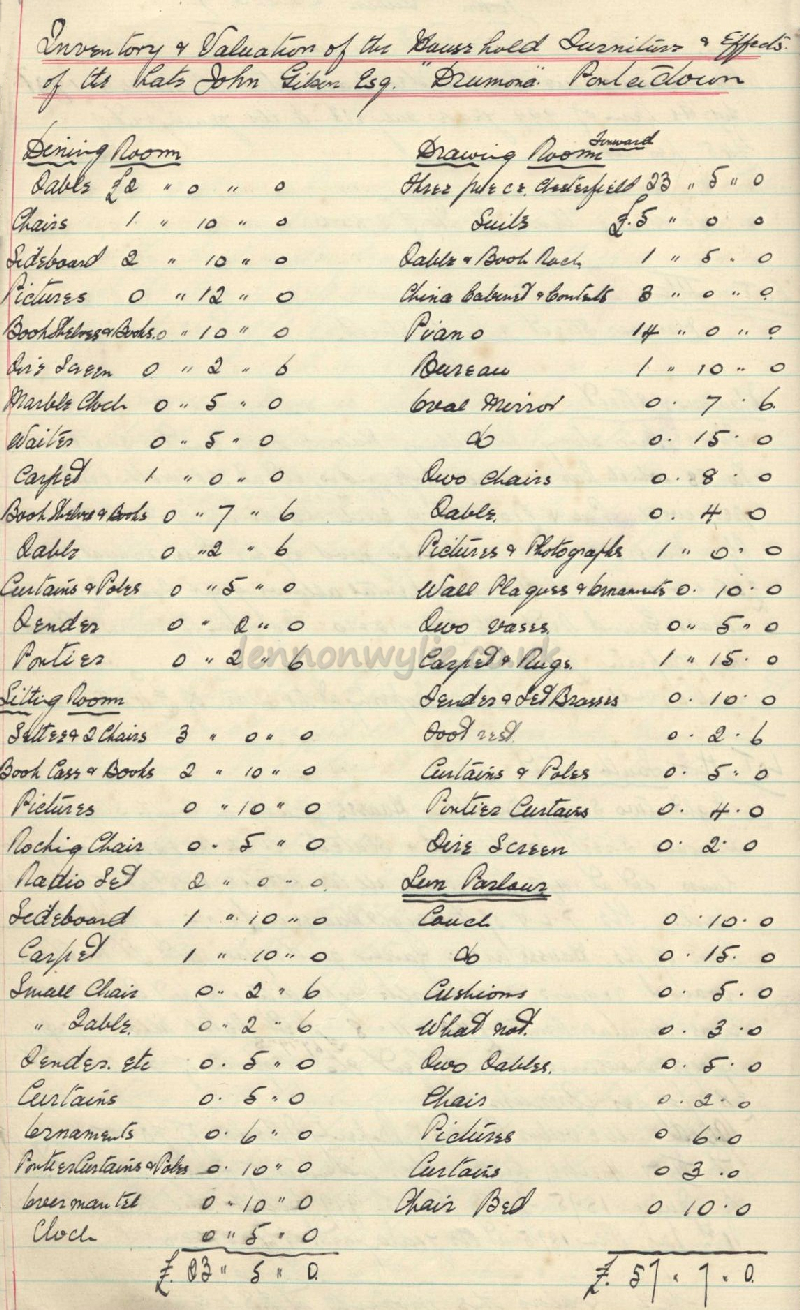 Inventory & Valuation of the Household Furniture & Effects.
of the Late John Gibson Esq. "Drumona". Portadown
Dining Room
Table £2 " 0 " 0
Chairs 1 " 10 " 0
Sideboard 2 " 10 " 0
Pictures 0 " 12 " 0
Book Shelves & Books. 0 " 10 " 0
Fire Screen 0 " 2 " 6
Marble Clock 0 " 5 " 0
Waiter 0 " 5 " 0
Carpet 1 " 0 " 0
Book Shelves & Books 0 " 7 " 6
Table 0 " 2 " 6
Curtains & Poles 0 " 5 " 0
Fender 0 " 2 " 0
Portier 0 " 2 " 6
Sitting Room
Settee & 2 Chairs 3 " 0 " 0
Book Case & Books 2 " 10 " 0
Pictures 0 " 10 " 0
Rockig Chair 0 " 5 " 0
Radio Set 2 " 0 " 0
Sideboard 1 " 10 " 0
Carpet 1 " 10 " 0
Small Chair 0 " 2 " 6
" Table. 0 " 2 " 6
Fender. etc 0 . 5 " 0
Curtains 0 . 5 " 0
Ornaments 0 . 6 " 0
Portier Curtains & Poles 0 . 10 " 0
Overmantel 0 " 10 " 0
Clock 0 " 5 " 0
£. 23 " 5 " 0.
Drawing Room Forward
Three piece Chesterfield 23 " 5 " 0
Suite £.5 " 0 0
Table & Book Rack 1 " 5 . 0
China Cabinet & Contents 3 " 0 " 0
Piano 14 " 0 " 0
Bureau 1 " 10 " 0
Oval Mirror 0 . 7 . 6
do 0 . 15 . 0
Two Chairs 0 . 8 . 0
Table. 0 . 4 0
Pictures & Photographs 1 " 0 . 0
Wall Plaques & Ornaments 0 . 10 . 0
Two vases 0 " 5 " 0
Carpet & Rugs. 1 " 15 . 0
Fender & Set Brasses 0 . 10 . 0
Foot rest 0 . 2 . 6
Curtains & Poles 0 . 5 . 0
Portier Curtains 0 . 4 . 0
Fire Screen 0 . 2 . 0
Sun Parlour
Couch 0 . 10 . 0
do 0 . 15 . 0
Cushions 0 . 5 . 0
What not. 0 . 3 . 0
Two Tables. 0 . 5 . 0
Chair 0 . 2 . 0
Pictures 0 6 . 0
Curtains 0 3 . 0
Chair Bed 0 10 . 0
£. 57 " 7 . 0.
lennonwylie.co.uk